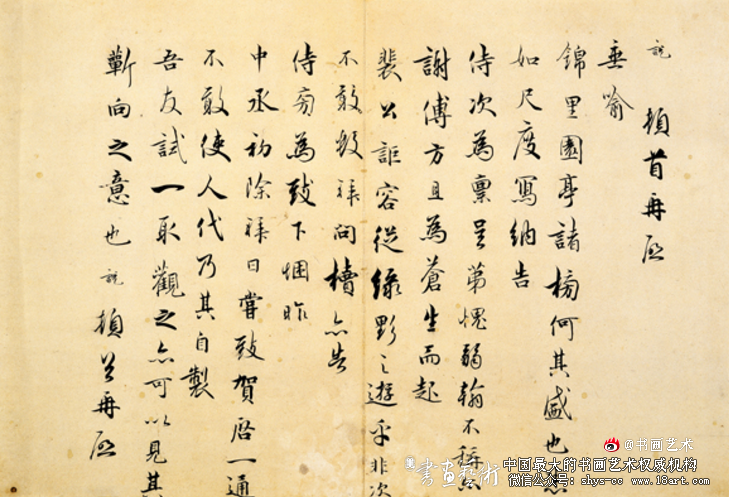 説 頓首再啓
垂喻
錦里園亭諸榜何其盛也
如尺度寫納告
侍次為稟呈第愧弱翰不稱
謝傅方且為蒼生而起
裴公詎容從綠野之遊乎非次
不敢數拜問櫝亦告
侍旁為致下悃昨
中丞初除拜日嘗致賀啓一通
不敢使人代乃其自製
吾友試一取觀之亦可以見其
蘄向之意也 説 頓首再啓
@书画艺术
書画藝術
中国最大的书画艺术权威机构
微信公众号: shys-cc www.18art.com